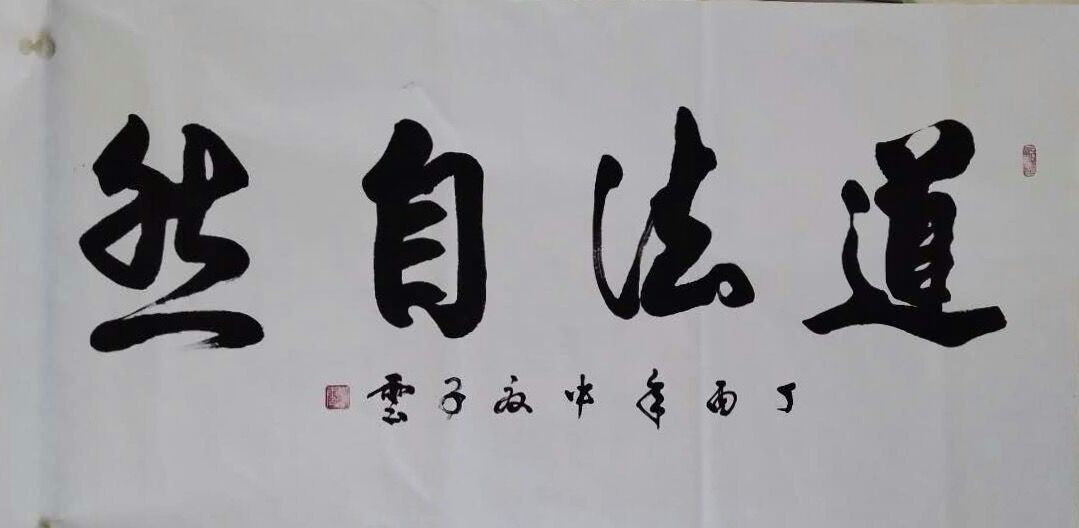 道法自然
丁酉年中夏子雲